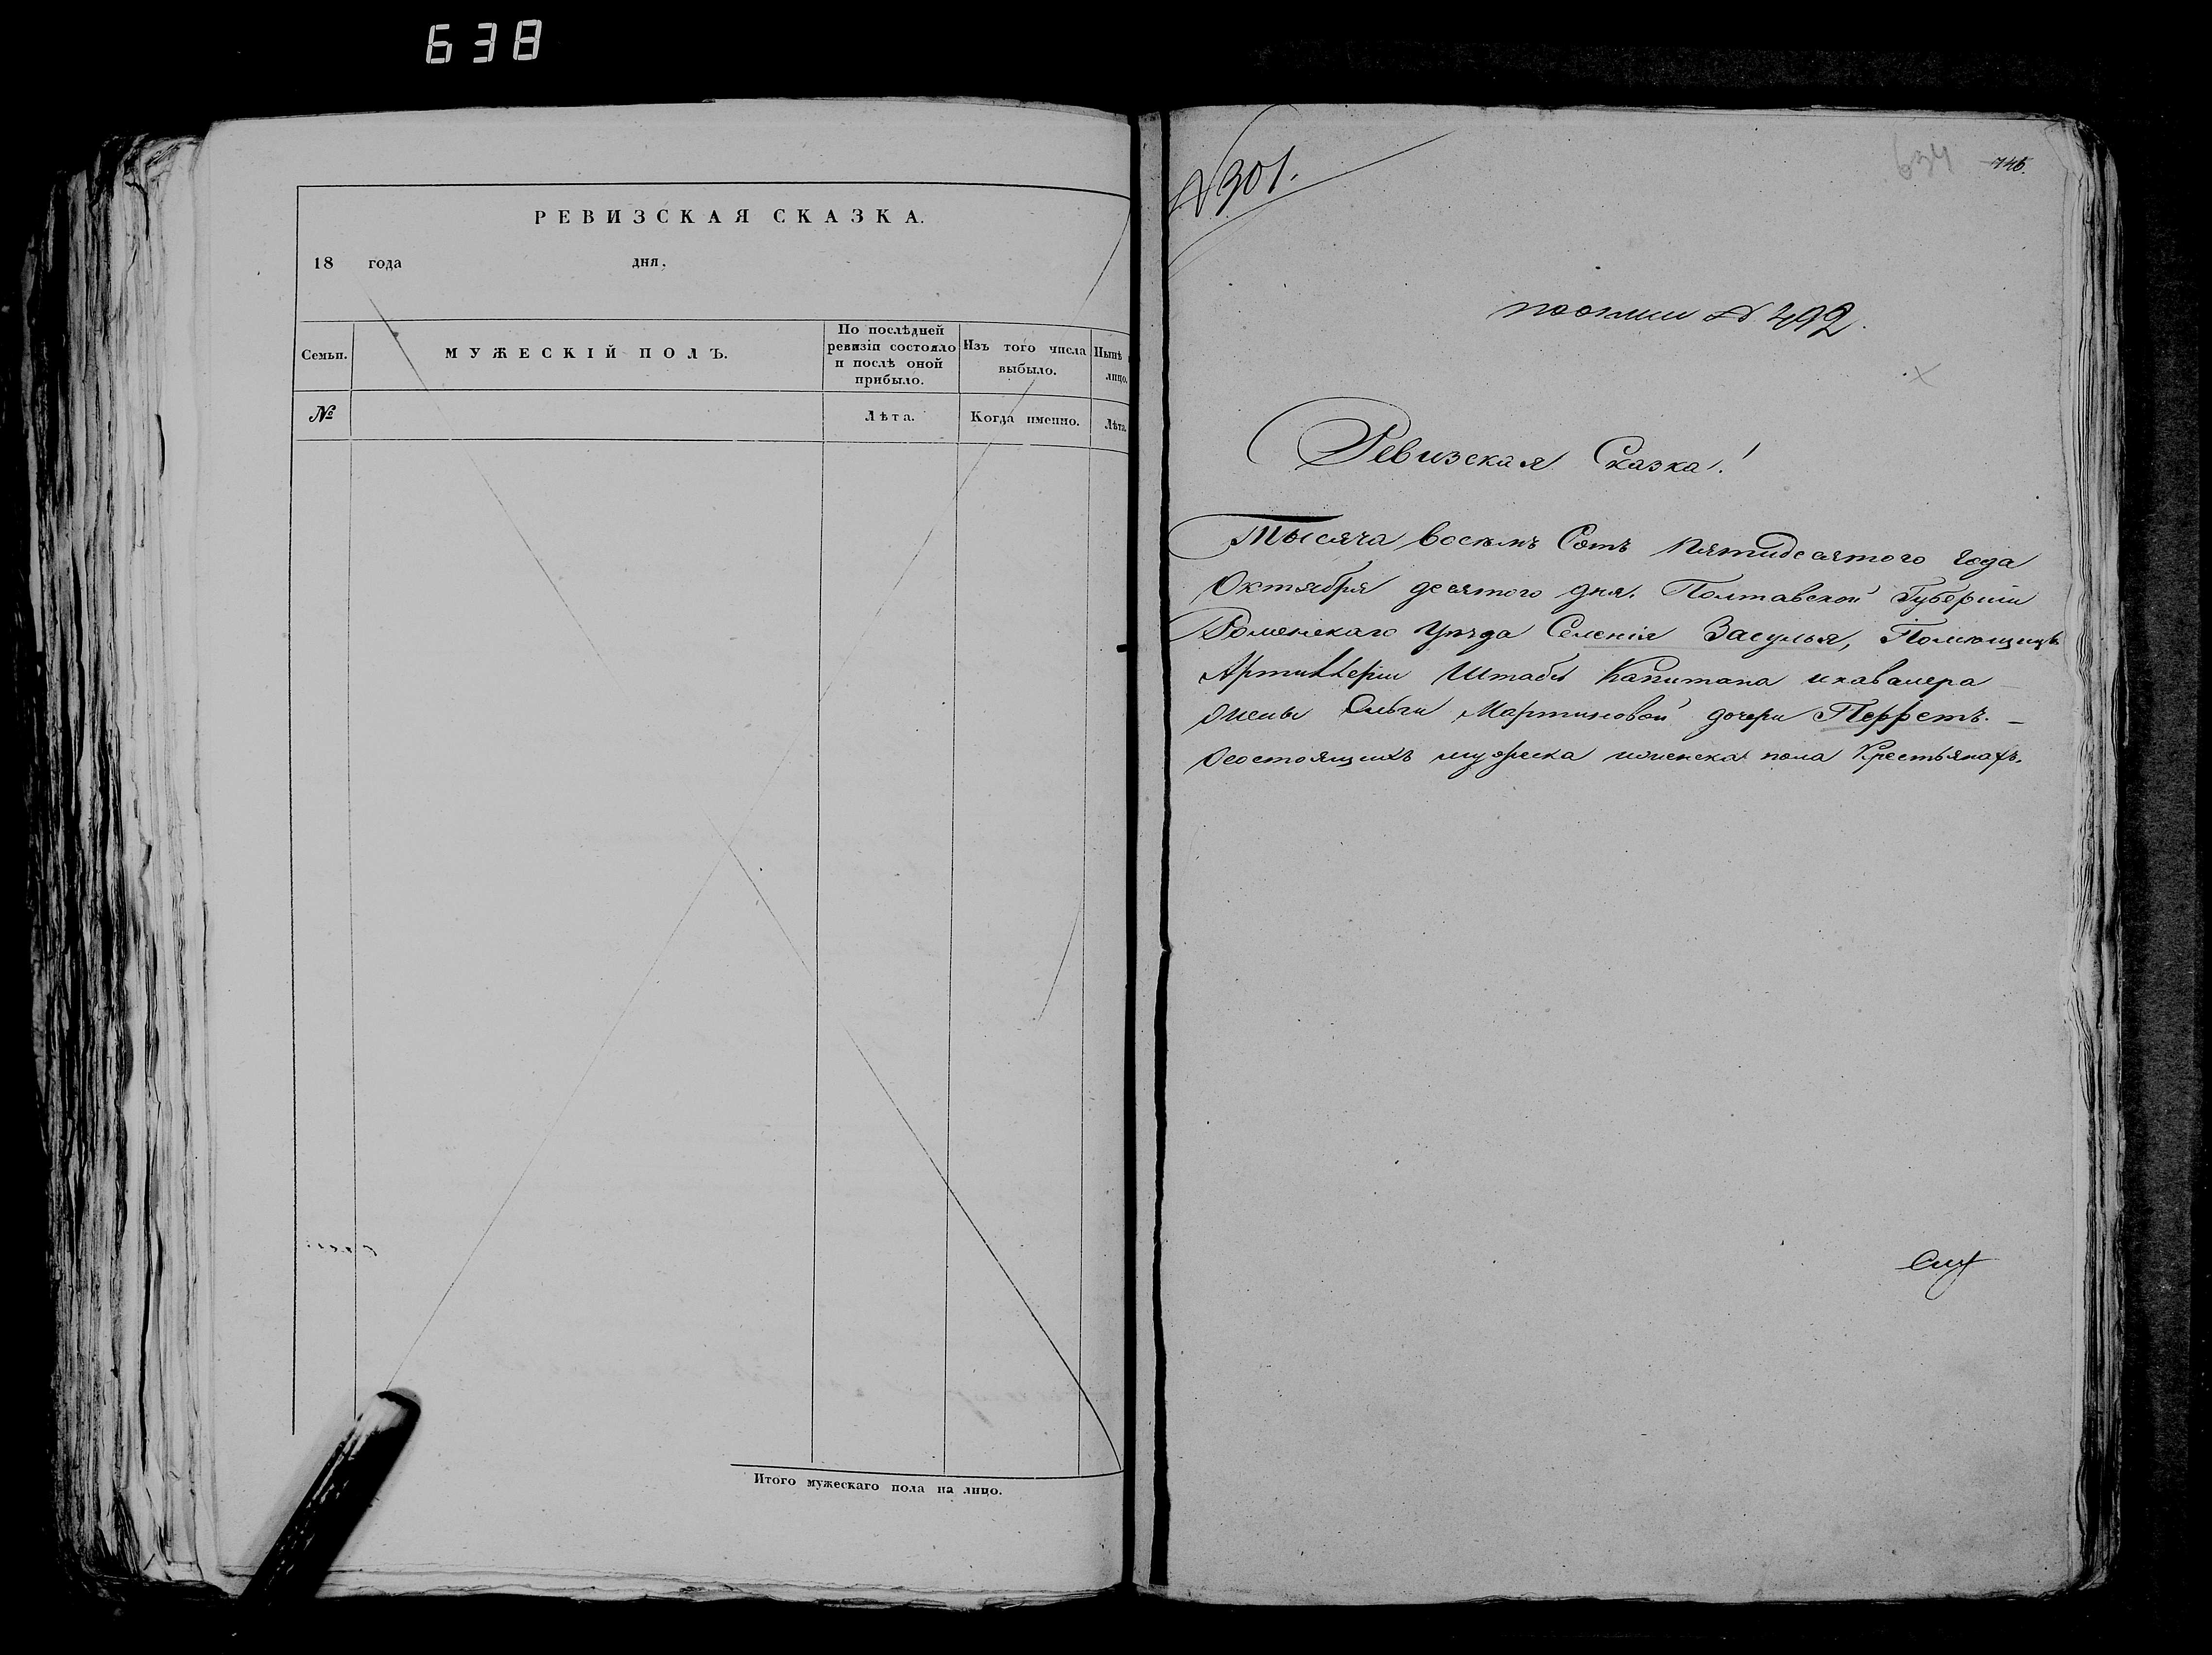 638
РЕВИЗСКАЯ СКАЗКА.
18 года дня.
Семьи.
МУЖЕСКІЙ ПОЛЪ.
По послѣдней ревизіи состояло и послѣ оной прибыло.
Изъ того числа выбыло.
Нынѣ лицо.
№
Лѣта.
Когда именно.
Лѣта.
Итого мужескаго пола на лицо.
№ 301.
634
746.
по описи № 492.
Ревизская Сказка!
Тысяча восемъ Сотъ пятидесятого года
Октября десятого дня. Полтавской Губерніи
Роменскаго Уѣзда Селенія Засулья, Помѣщицѣ
Артиллеріи Штабсъ Капитана и кавалера
жены Ольги Мартиновой дочери Перретъ. —
о состоящихъ мужеска и женска пола Крестьянахъ.